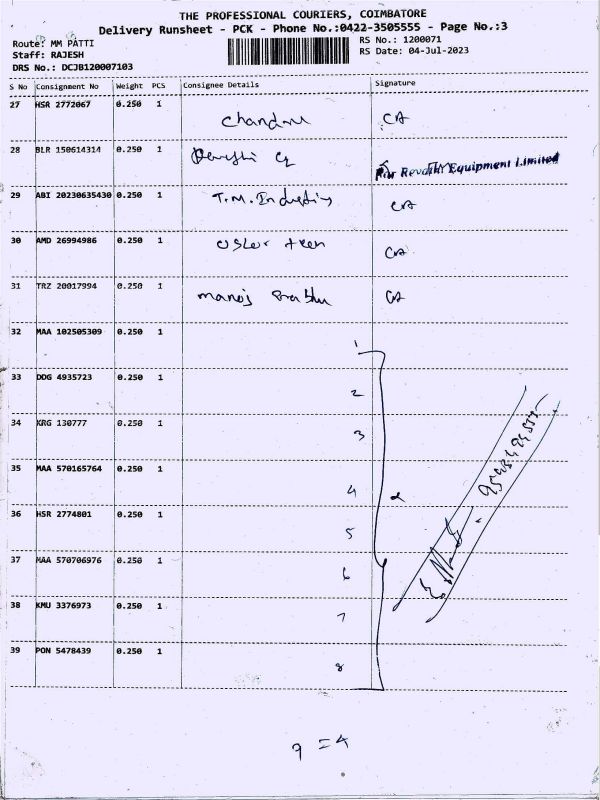 THE PROFESSIONAL COURIERS, COIMBATORE
Delivery Runsheet - PCK - Phone No.:0422-3505555 - Page No.:3
Route: MM PATTI
RS No.: 1200071
Staff: RAJESH
RS Date: 04-Jul-2023
DRS No.: DCJB120007103
S No Consignment No Weight PCS Consignee Details Signature
27 HSR 2772067 0.250 1 CA
28 BLR 150614314 0.250 1 Equipment Limited
29 ABI 20230635430 0.250 1 T.M. CA
30 AMD 26994986 0.250 1 CA
31 TRZ 20017994 0.250 1 manoj CA
32 MAA 102505309 0.250 1 1
33 DDG 4935723 0.250 1 2
34 KRG 130777 0.250 1 3
35 MAA 570165764 0.250 1 4
36 HSR 2774801 0.250 1 5
37 MAA 570706976 0.250 1 6
38 KMU 3376973 0.250 1 7
39 PON 5478439 0.250 1 8
9 = 4